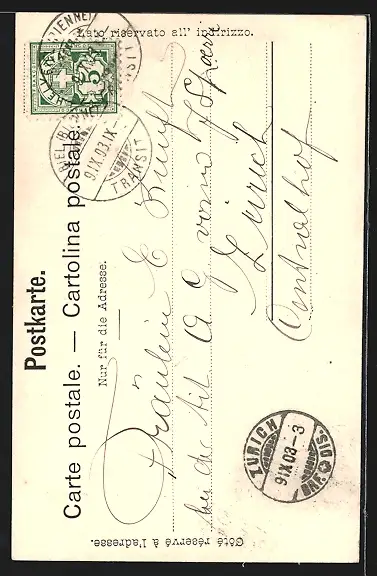 Postkarte.
Carte postale. — Cartolina postale.
Nur für die Adresse.
Lato riservato all' indirizzo.
Côté réservé à l'adresse.
5
BIEL (BIENNE)
9.IX.03.IX
TRANSIT
Fräulein E
bei der
Zürich
Centralhof
ZÜRICH
9.IX.03-3
BRF. DIS.